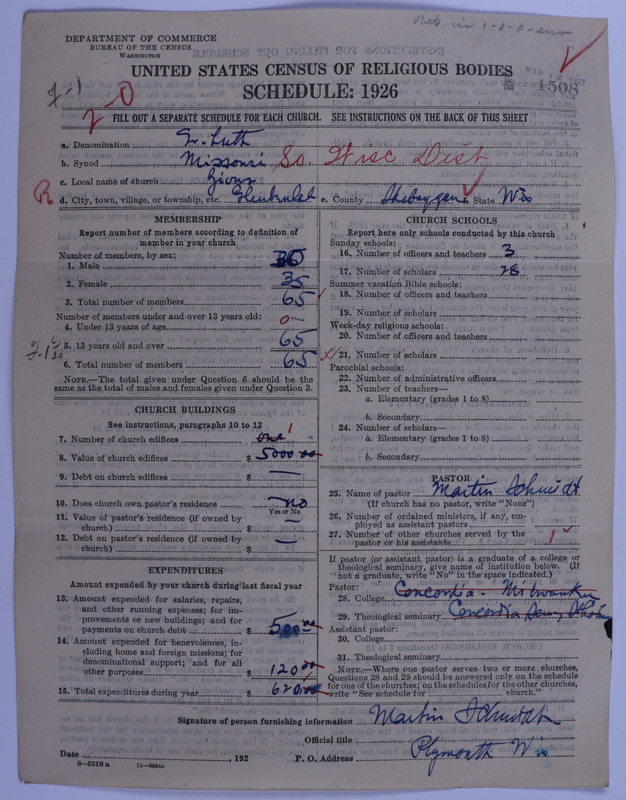 DEPARTMENT OF COMMERCE
BUREAU OF THE CENSUS
WASHINGTON
UNITED STATES CENSUS OF RELIGIOUS BODIES
SCHEDULE: 1926
1508
2-0
FILL OUT A SEPARATE SCHEDULE FOR EACH CHURCH. SEE INSTRUCTIONS ON THE BACK OF THIS SHEET
a. Denomination Ev. Luth
b. Synod Missouri So. Wisc Dist
c. Local name of church Zions
R d. City, town, village, or township, etc. Glenbulah e. County Sheboygan State Wis
MEMBERSHIP
Report number of members according to definition of member in your church
Number of members, by sex:
1. Male
2. Female 35
3. Total number of members 65
Number of members under and over 13 years old:
4. Under 13 years of age 0
5. 13 years old and over 65
6. Total number of members 65
NOTE.—The total given under Question 6 should be
same as the total of males and females given under Question 3.
CHURCH BUILDINGS
See instructions, paragraphs 10 to 12
7. Number of church edifices one 1
8. Value of church edifices $ 5000 00
9. Debt on church edifices $ —
10. Does church own pastor's residence no
Yes or No
11. Value of pastor's residence (if owned by
church) $ —
12. Debt on pastor's residence (if owned by
church) $ —
EXPENDITURES
Amount expended by your church during last fiscal year
13. Amount expended for salaries, repairs,
and other running expenses; for im-
provements or new buildings; and for
payments on church debt $ 500 00
14. Amount expended for benevolences, in-
cluding home and foreign missions; for
denominational support; and for all
other purposes $ 120 00
15. Total expenditures during year $ 620 00
CHURCH SCHOOLS
Report here only schools conducted by this church
Sunday schools:
16. Number of officers and teachers 3
17. Number of scholars 28
Summer vacation Bible schools:
18. Number of officers and teachers
19. Number of scholars
Week-day religious schools:
20. Number of officers and teachers
21. Number of scholars
Parochial schools:
22. Number of administrative officers
23. Number of teachers—
a. Elementary (grades 1 to 8)
b. Secondary
24. Number of scholars—
a. Elementary (grades 1 to 8)
b. Secondary
PASTOR
25. Name of pastor Martin Schmidt
(If church has no pastor, write "None")
26. Number of ordained ministers, if any, em-
ployed as assistant pastors
27. Number of other churches served by the
pastor or his assistants 1
If pastor (or assistant pastor) is a graduate of a college or
theological seminary, give name of institution below. (If
not a graduate, write "No" in the space indicated.)
Pastor:
28. College Concordia - Milwaukee
29. Theological seminary Concordia Sem,
Assistant pastor:
30. College
31. Theological seminary
NOTE.—Where one pastor serves two or more churches,
Questions 28 and 29 should be answered only on the schedule
for one of the churches; on the schedules for the other churches,
write "See schedule for church."
Signature of person furnishing information Martin Schmidt
Official title
Date , 192 P. O. Address Plymouth Wis
8-5318a 11-9054a